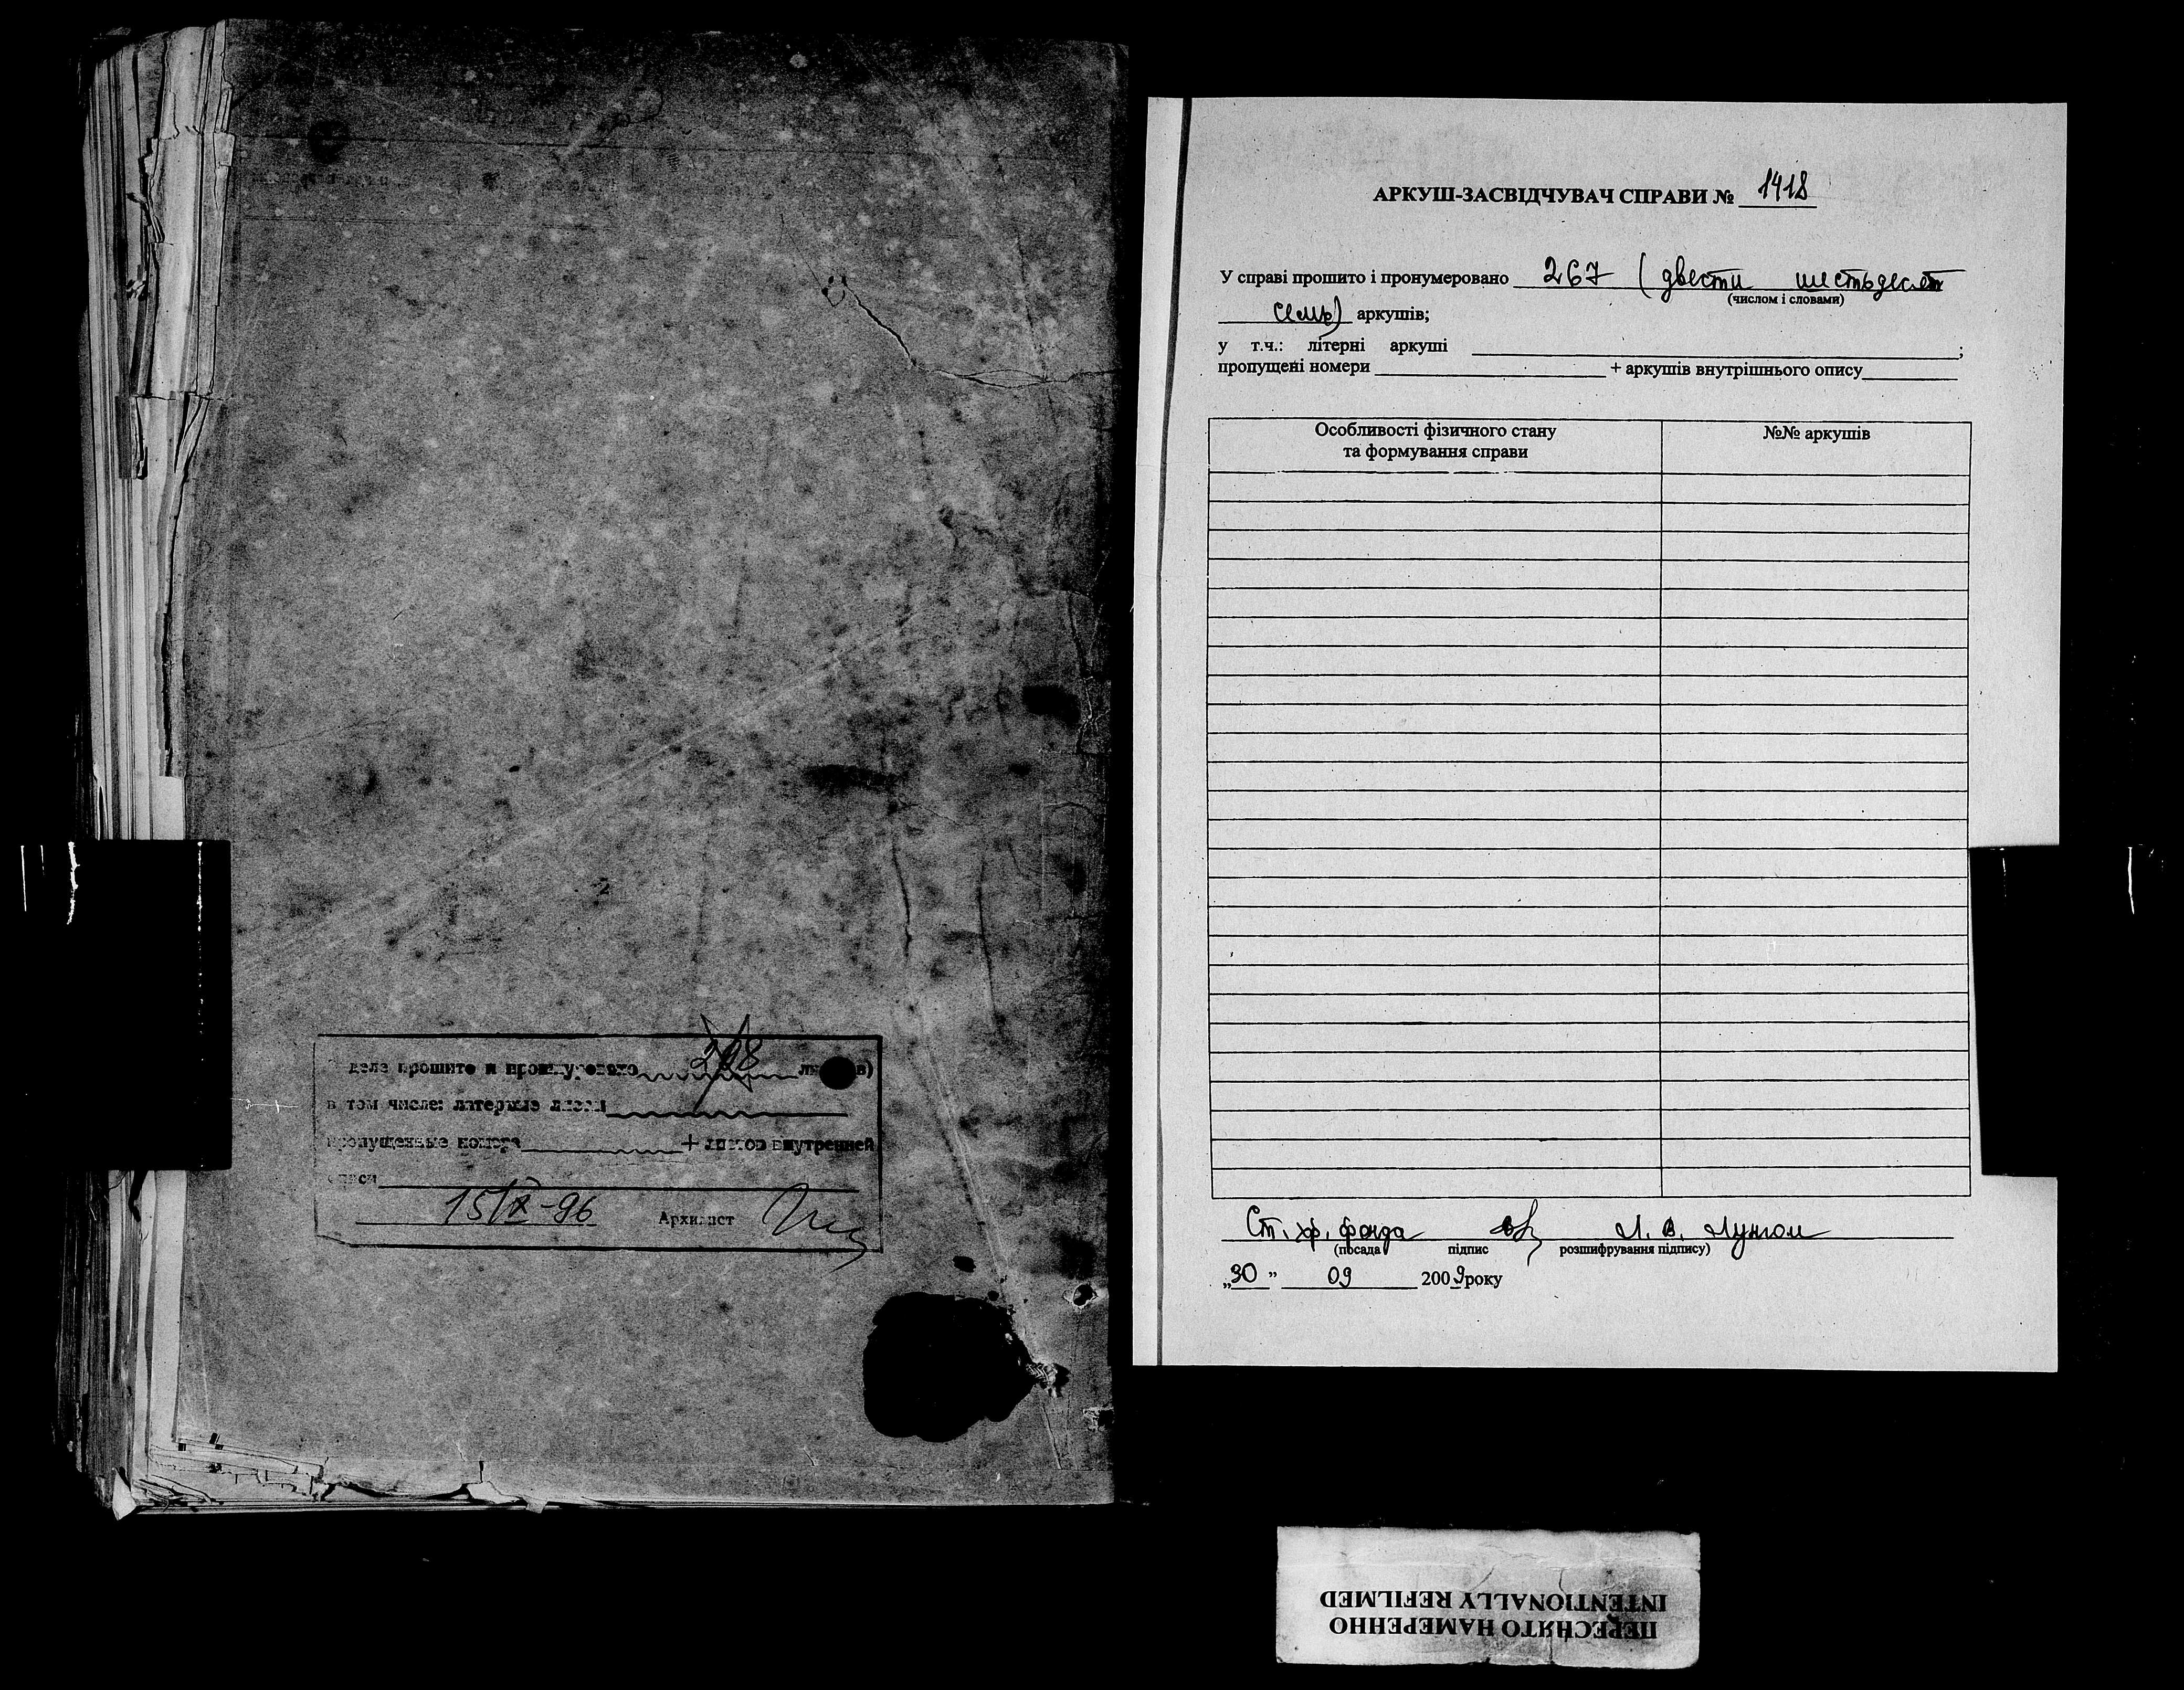 деле прошито и пронумеровано 208 в)
в том числе: литерные листы
пропущенные номера + листов внутренней
описи
15/IX-96 Архивист
АРКУШ-ЗАСВІДЧУВАЧ СПРАВИ № 1418
У справі прошито і пронумеровано 267 (двести шестьдесят
(числом і словами)
семь) аркушів;
у т.ч.: літерні аркуші ;
пропущені номери + аркушів внутрішнього опису
Особливості фізичного стану №№ аркушів
та формування справи
Ст. хр. фонда Л. В.
(посада підпис розшифрування підпису)
„30 ” 09 2009 року
ПЕРЕСНЯТО НАМЕРЕННО
INTENTIONALLY REFILMED